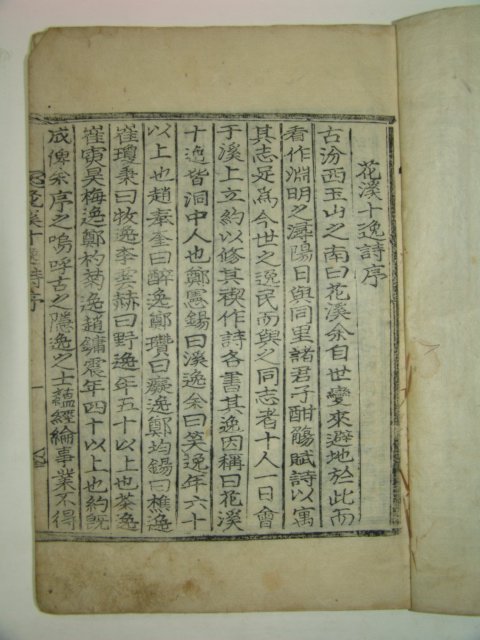 花溪十逸詩序
古汾西玉山之南曰花溪余自世變來避地於此而
看作淵明之潯陽日與同里諸君子酣觴賦詩以寓
其志足爲今世之逸民而與之同志者十人一日會
于溪上立約以修其稧作詩各書其逸因稱曰花溪
十逸皆洞中人也鄭憲錫曰溪逸余曰笑逸年六十
以上也趙奎曰醉逸鄭瓚曰癡逸鄭均錫曰樵逸
崔瓊秉曰牧逸李雲赫曰野逸年五十以上也茶逸
崔寅昊梅逸鄭杓菊逸趙鏞震年四十以上也約旣
成俾余序之嗚呼古之隱逸之士蘊經綸事業不得
花溪十逸詩序
一